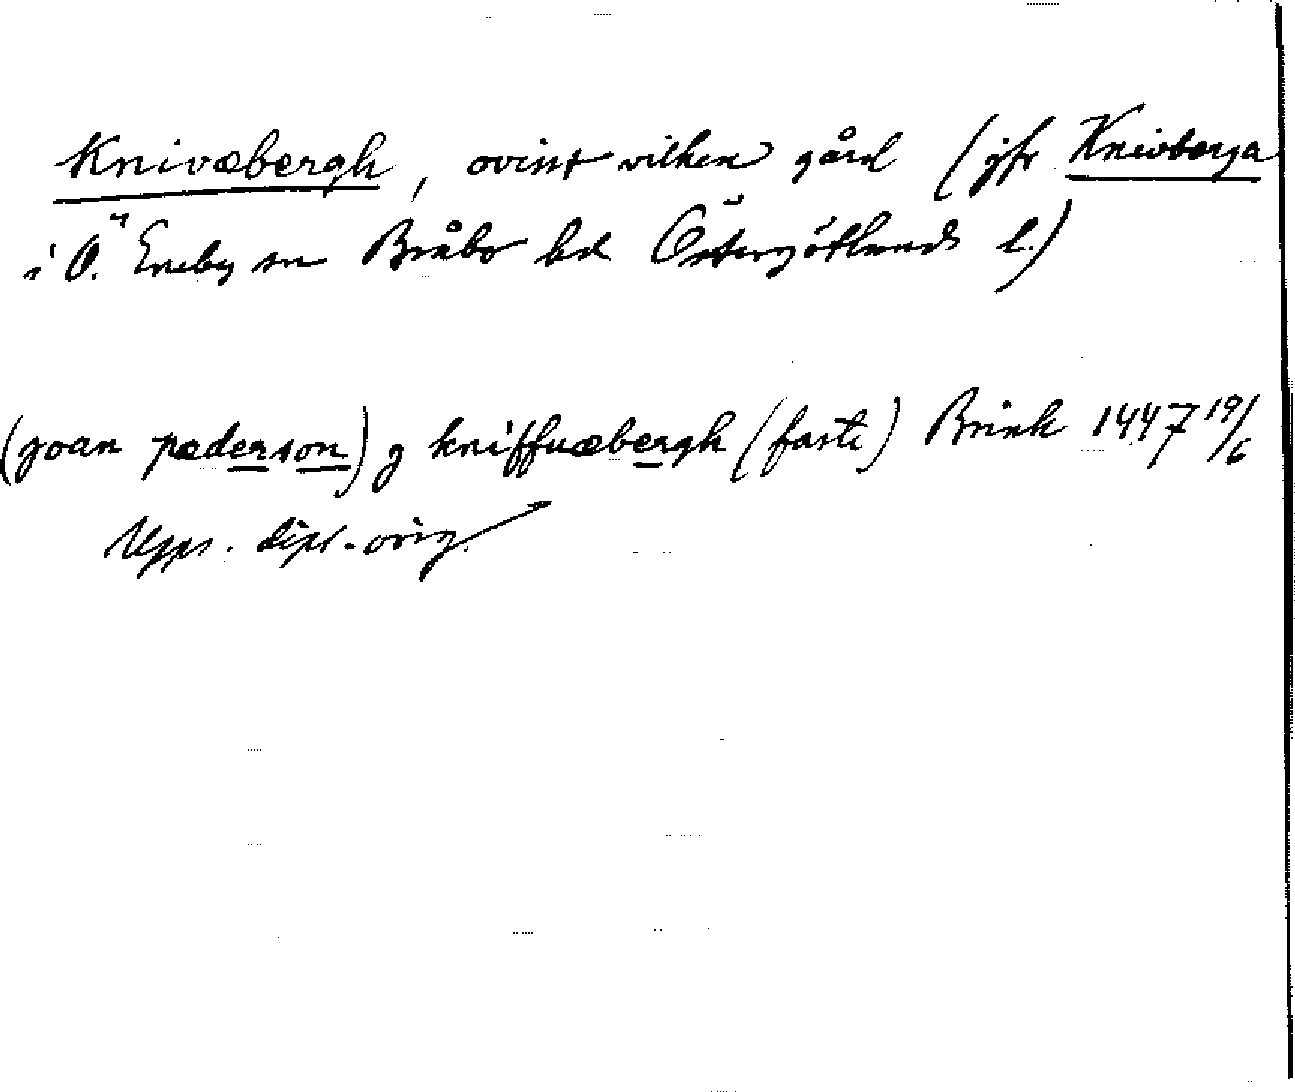 Knivæbergh, ovisst vilken gård (jfr Knivberga
i Ö. Eneby sn Bråbo hd Östergötlands l.)
(joan pæderson) j kniffuæbergh (faste) Brink 1447 19/6
Upps. dipl.-orig.